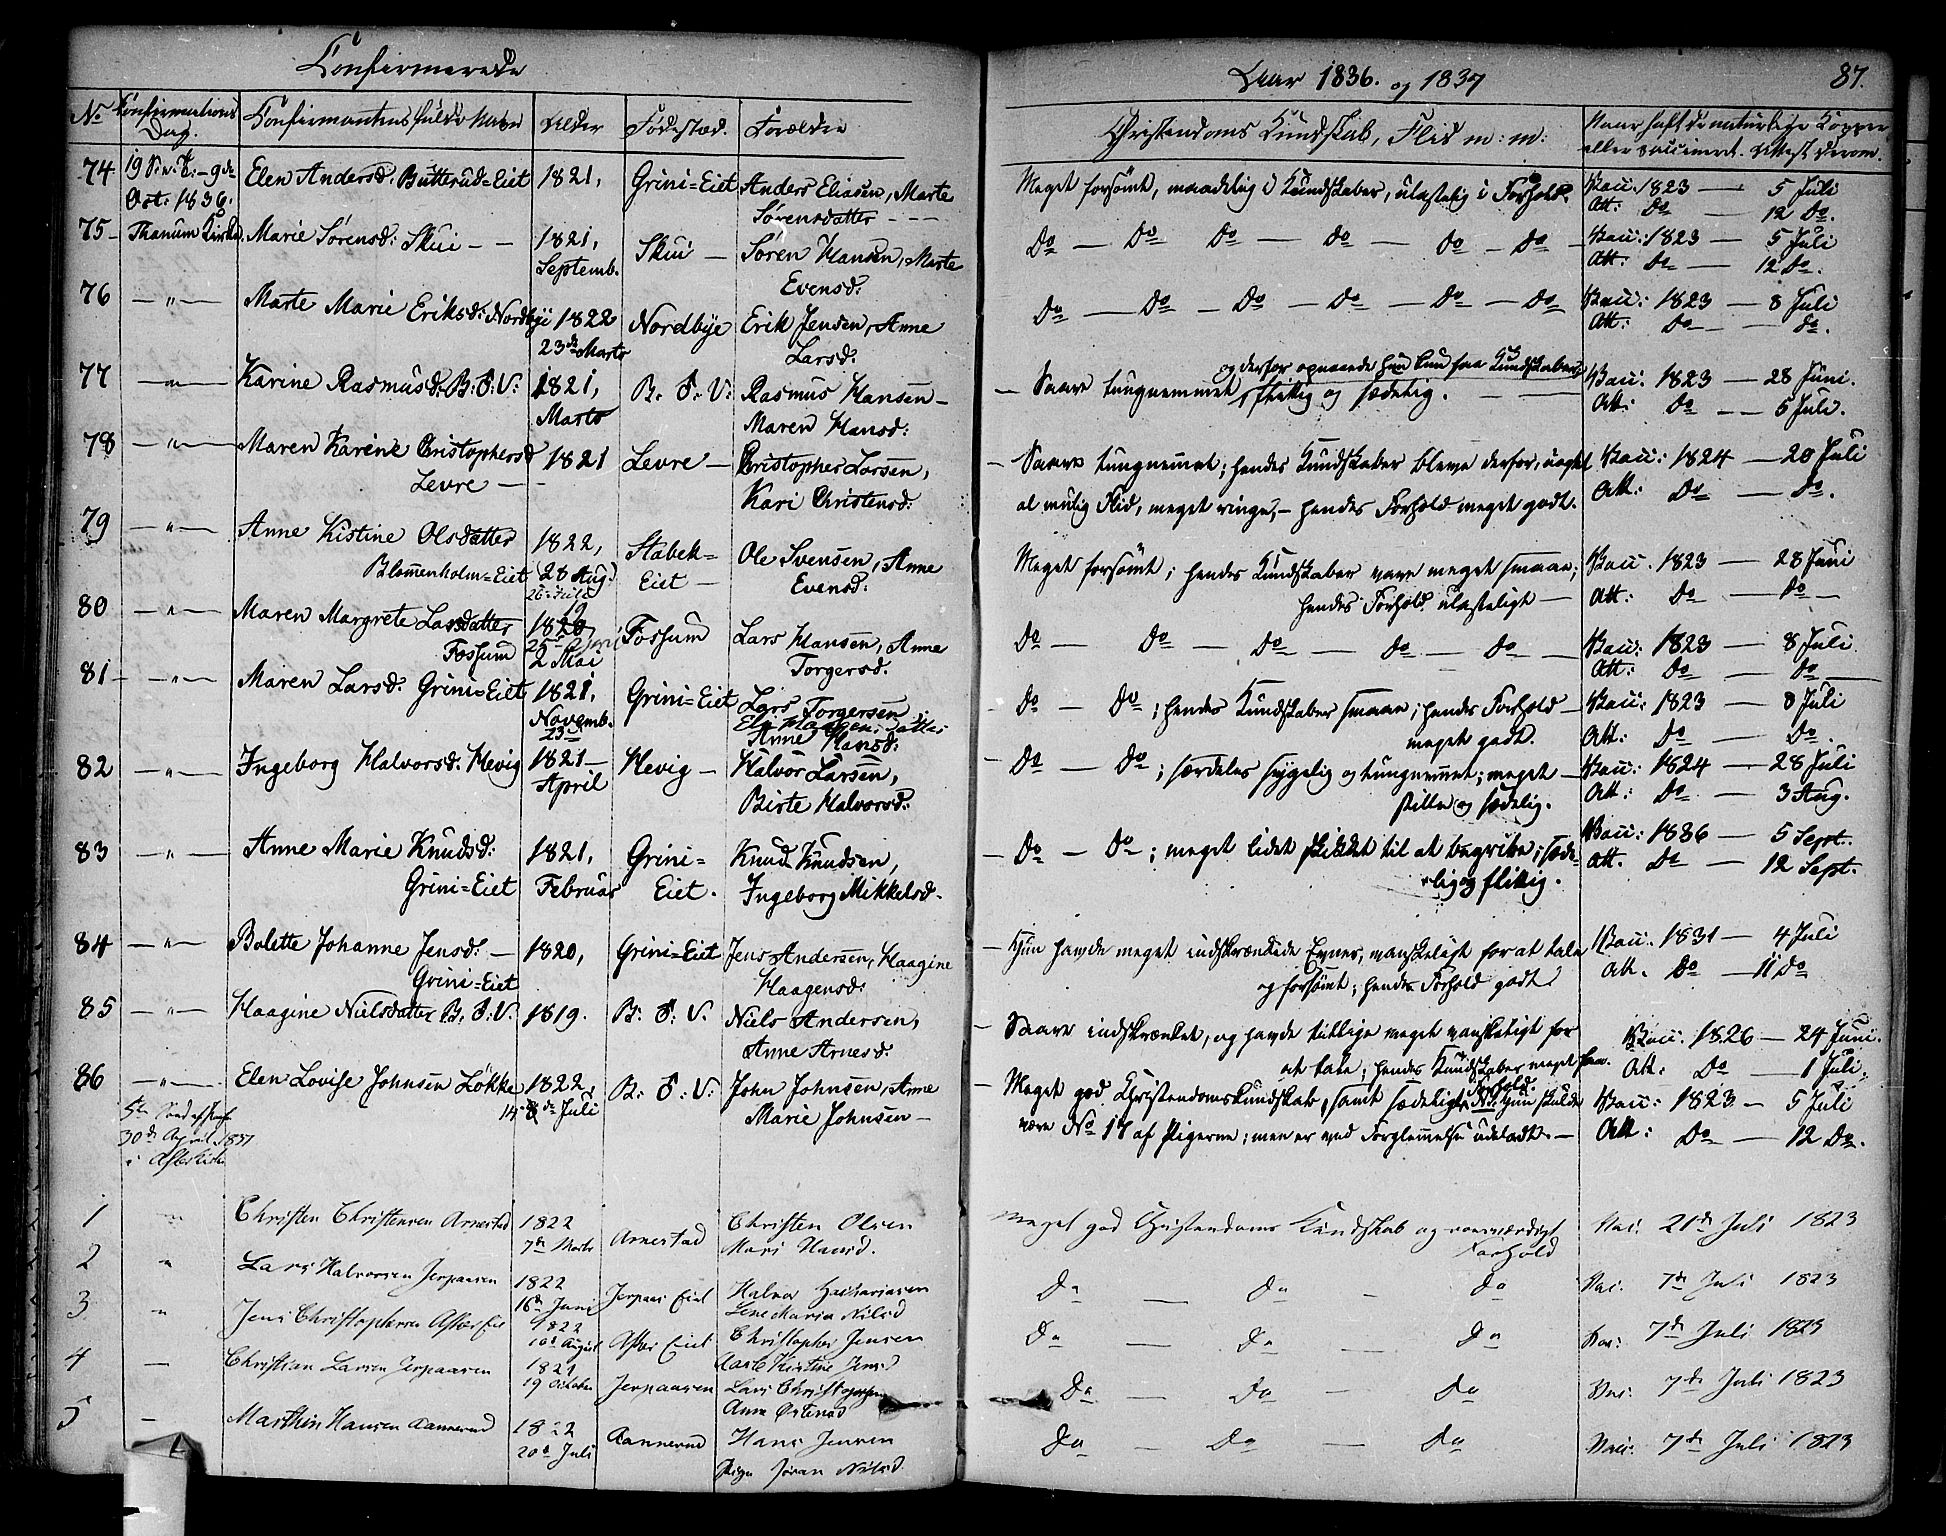 Confirmerede
Aar 1836. og 1837
87.
No Confirmations Dag. Confirmantens fulde Navn Alder Fødested. Forældre Christendoms Kundskab, Flid m: m: Naar haft de naturlige Kopper
eller vaccineret. Attest derom.
74 19 S. e. T. - 9de Elen Andersd. Butterud=Eiet 1821, Grini=Eiet Anders Eliasen, Marte Meget forsömt, maadelig i Kundskaber, ulastelig i Forhold. Vacc: 1823 — 5 Juli
Oct: 1836. Sörensdatter - - - Att: Do — 12 Do.
75 - Thanum Kirke Marie Sørensd: Skui - - 1821, Skui — Søren Hansen, Marte Do — Do Do — Do — Do — Do — Vacc: 1823 — 5 Juli
Septemb. Evensd: Att. Do — 12 Do.
76 — " — Marte Marie Eriksd: Nordbye 1822 Nordbye Erik Jensen, Anne Do — Do — Do — Do — Do — Do Vacc: 1823 — 8 Juli
23de Marts Larsd. Att: Do — — do.
og derfor opnaaede hun kun faa Kundskaber;
77 — " — Karine Rasmusd. B: S. V: 1821, B. S. V: Rasmus Hansen — — Saare tungnemmet, flittig og sædelig. — — Vacc. 1823 — 28 Juni.
Marts Maren Hansd: Att: Do — — 5 Juli.
78 — " — Maren Karine Christophersd 1821 Levre — Christopher Larsen, — Saare tungnemet; hendes Kundskaber bleve derfor, uagtet Vacc: 1824 — 20 Juli
Levre — - Kari Christensd: al mulig Flid, meget ringe, — hendes Forhold meget godt. Att: Do — Do.
79 — " — Anne Kistine Olsdatter 1822, Stabek= Ole Svensen, Anne Meget forsömt; hendes Kundskaber vare meget smaae; Vacc. 1823 — 28 Juni
Blommenholm=Eiet (28 Aug.) Eiet — Evensd: hendes Forhold ulasteligt — Att: Do — Do —
26 Juli
80 — " — Maren Margrete Larsdatter 1820 19 Fossum Lars Hansen, Anne Do — Do — Do — Do — Do — Vacc: 1823 — 8 Juli
Fossum 2 Mai Torgersd. Att: Do — Do
81 - — " — Maren Larsd. Grini=Eiet 1821, Grini=Eiet Lars Torgersen — Do — Do; hendes Kundskaber smaae; hendes Forhold — Vacc: 1823 — 8 Juli
Novemb. Anne Hansd: meget godt. Att: Do — Do.
23
82 — " — Ingeborg Halvorsd. Hevig 1821 — Hevig — Halvor Larsen, — Do — Do; særdeles sygelig og tungnemet; meget — Vacc: 1824 — 28 Juli
April Birte Halvorsd: stille og sædelig. Att: Do — 3 Aug.
83 — " — Anne Marie Knudsd: 1821, Grini= Knud Knudsen, — Do — Do; meget lidet skikket til at begribe; sæde- Vacc: 1836 — 5 Sept.
Grini=Eiet Februar Eiet. Ingeborg Mikkelsd. lig og flittig. Att. Do — 12 Sept.
84 — " — Bolette Johanne Jensd: — 1820, Grini=Eiet Jens Andersen, Haagine — Hun havde meget indskrænkede Evner, vanskeligt for at tale Vacc. 1831 — 4 Juli
Grini=Eiet Haagensd: og forsömt; hendes Forhold godt. Att. Do — 11 Do
85 — " — Haagine Nielsdatter B. S. V. 1819. B: S: V. Niels Andersen, — Saare indskrænket, og havde tillige meget vanskeligt for Vacc: 1826 — 24 Juni.
Anne Arnesd. at tale; hendes Kundskaber meget faa. Att: Do — 1 Juli.
86 — " — Elen Lovise Johnsen Lökke 1822, B: S: V: John Johnsen, Anne — Meget god Christendomskundskab, samt sædeligt Forhold. NB: Hun skulde Vacc: 1823 — 5 Juli
14 de Juli Marie Johnsen — være No 17 af Pigerne; men er ved Forglemmelse udeladt. — Att: Do — 12 Do.
30de April 1837
i Asker Kirke
1 " Christen Christensen Arnestad 1822 Arnestad Christen Olsen meget god Christendoms Kundskab og roesværdigt Vac: 21de Juli 1823
7de Marts Mari Hansd. Forhold
2 " Lars Halvorsen Jerpaasen 1822 Jerpaas Eiet Halvor Zachariasen Do — Do - Do Vac: 7de Juli 1823
16de Juni Lene Maria Nilsd
3 " Jens Christophersen Asker Eie 1822 Asker Eiet Christopher Jensen Do — Do — Do Vac: 7de Juli 1823
10de August Aase Kirstine Jensd
4 — Christian Larsen Jerpaasen 1821 Jerpaasen Lars Christophersen Do — Do — Do Vac: 7de Juli 1823
19 October Anne Ostensd
5 — Marthin Hansen Aannerud 1822 Aannerud Hans Jensen Do — Do — Do Vac: 7de Juli 1823
20de Juli Pige Jøran Nilsd.